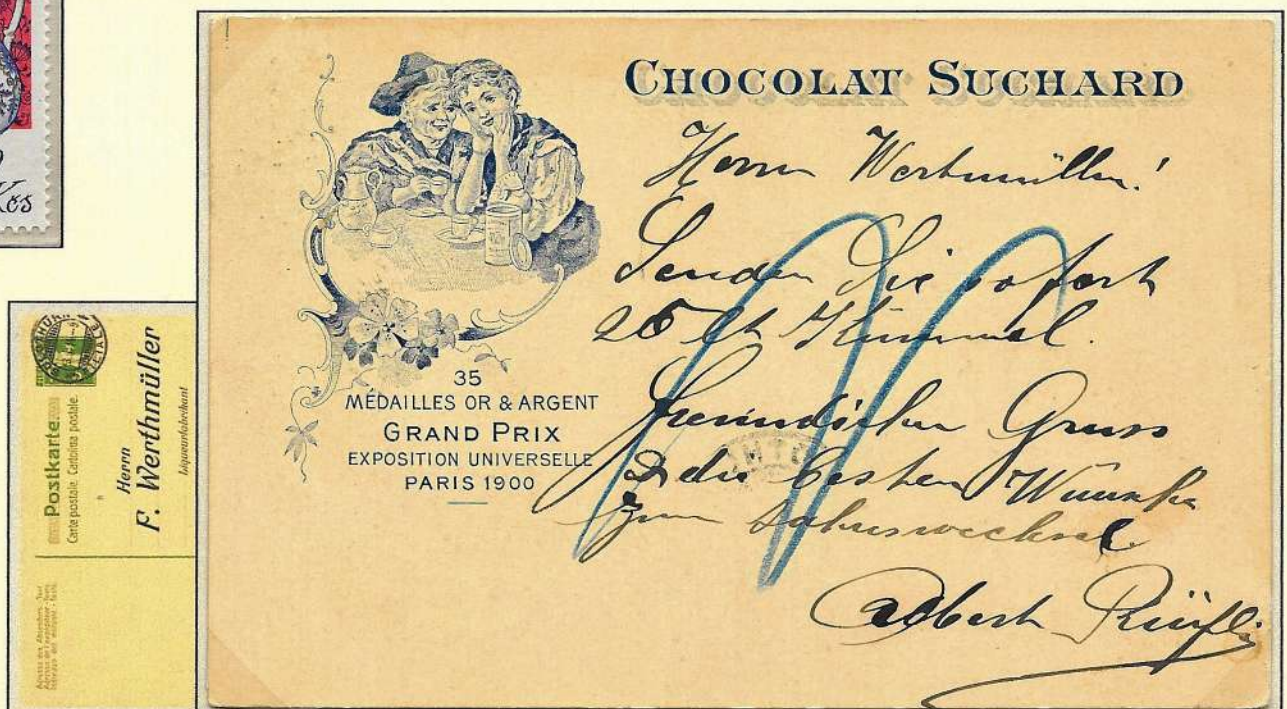 Kčs
Postkarte.
Carte postale. Cartolina postale.
Herrn
F. Werthmüller
Liqueurfabrikant
CHOCOLAT SUCHARD
35
MÉDAILLES OR & ARGENT
GRAND PRIX
EXPOSITION UNIVERSELLE
PARIS 1900
Herrn Werthmüller!
Senden Sie sofort
25 Lt Kümmel.
freundlichen Gruss
& die besten Wünsche
zum Jahreswechsel
Albert Rüefli